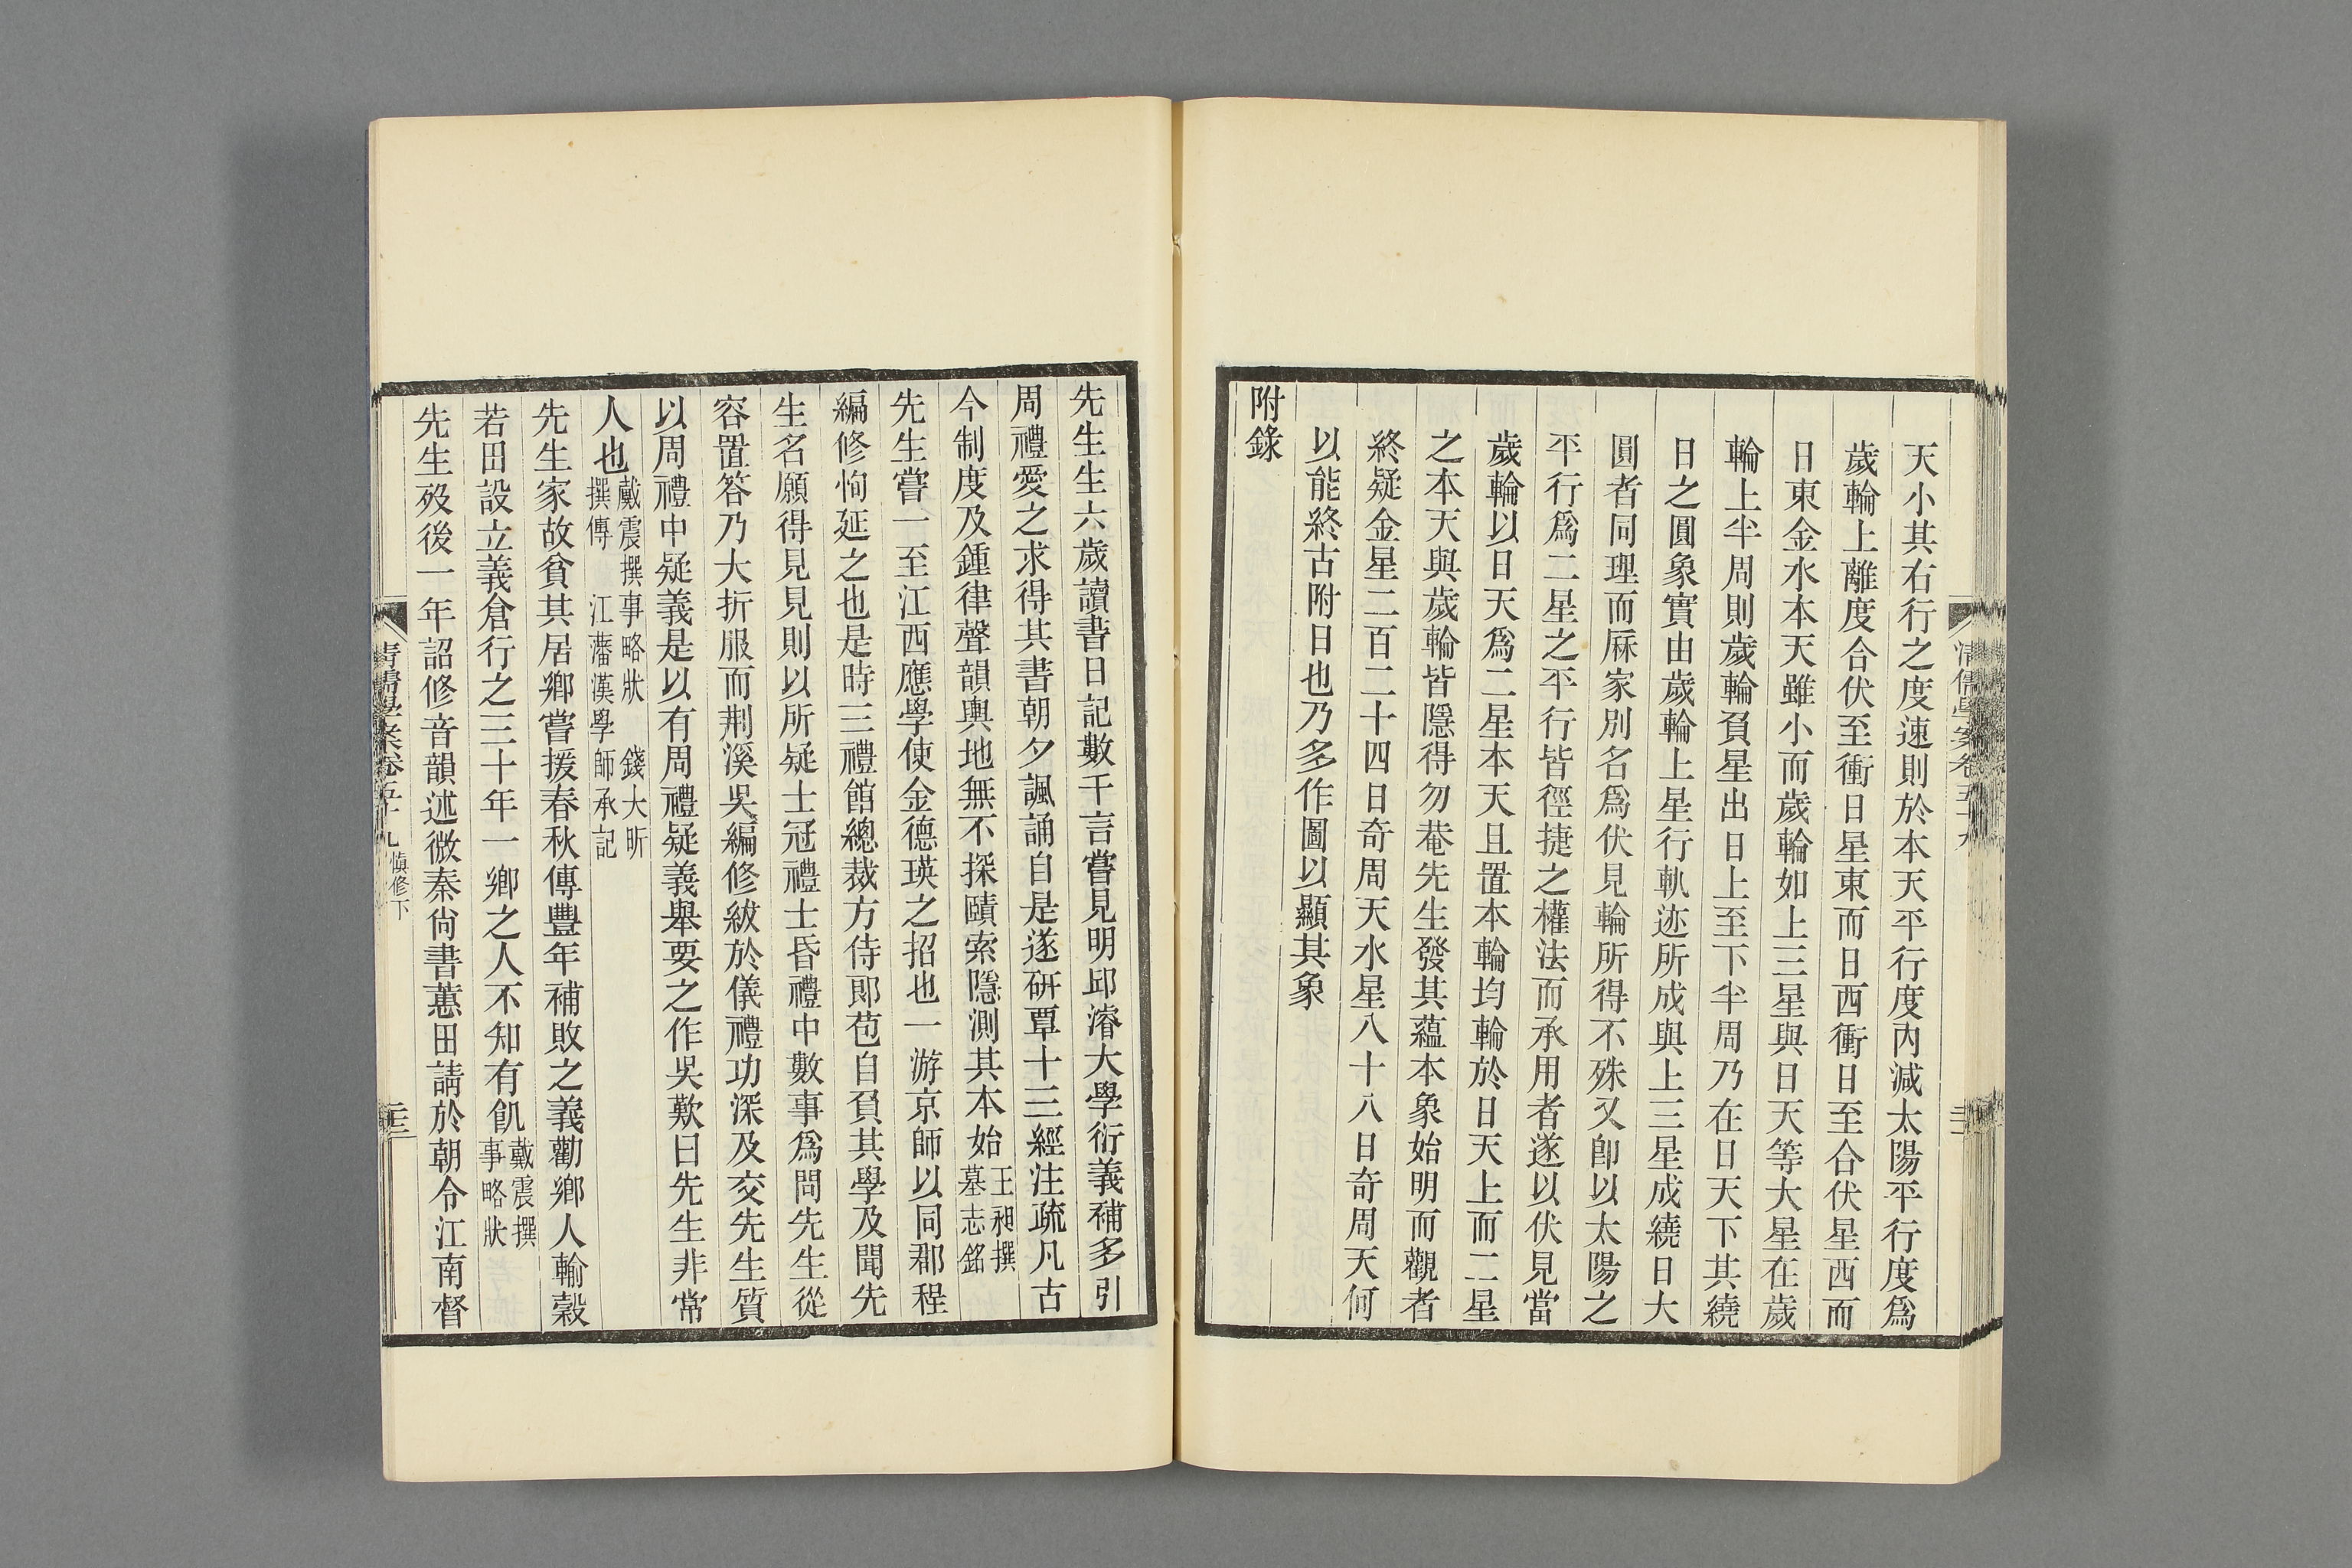 天小其右行之度速則於本天平行度內減太陽平行度爲
歲輪上離度合伏至衝日星東而日西衝日至合伏星西而
日東金水本天雖小而歲輪如上三星與日天等大星在歲
輪上半周則歲輪負星出日上至下半周乃在日天下其繞
日之圓象實由歲輪上星行軌迹所成與上三星成繞日大
圓者同理而厤家別名爲伏見輪所得不殊又卽以太陽之
平行爲二星之平行皆徑捷之權法而承用者遂以伏見當
歲輪以日天爲二星本天且置本輪均輪於日天上而二星
之本天與歲輪皆隱得勿菴先生發其蘊本象始明而觀者
終疑金星二百二十四日奇周天水星八十八日奇周天何
以能終古附日也乃多作圖以顯其象
附錄
清儒學案卷五十九
三十二
先生生六歲讀書日記數千言嘗見明邱濬大學衍義補多引
周禮愛之求得其書朝夕諷誦自是遂研覃十三經注疏凡古
今制度及鍾律聲韻輿地無不探賾索隱測其本始王昶撰墓志銘
先生嘗一至江西應學使金德瑛之招也一游京師以同郡程
編修恂延之也是時三禮館總裁方侍郞苞自負其學及聞先
生名願得見見則以所疑士冠禮士昏禮中數事爲問先生從
容置答乃大折服而荆溪吳編修紱於儀禮功深及交先生質
以周禮中疑義是以有周禮疑義舉要之作吳歎曰先生非常
人也戴震撰事略狀 錢大昕撰傳 江藩漢學師承記
先生家故貧其居鄕嘗援春秋傳豐年補敗之義勸鄕人輸穀
若田設立義倉行之三十年一鄕之人不知有飢戴震撰事略狀
先生歿後一年詔修音韻述微秦尙書蕙田請於朝令江南督
清儒學案卷五十九 愼修下
三十三